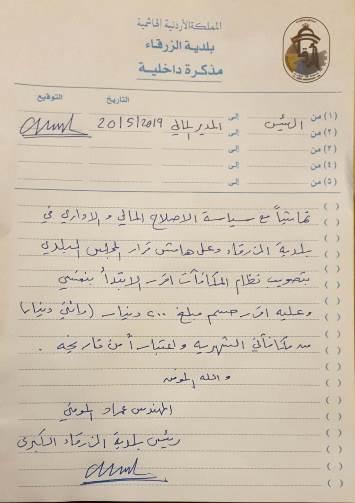 المملكة الأردنية الهاشمية
بلدية الزرقاء
مذكرة داخلية
التاريخ التوقيع
(١) من الرئيس إلى المدير المالي 20/5/2019
(٢) من إلى
(٣) من إلى
(٤) من إلى
(٥) من إلى
تماشياً مع سياسة الاصلاح المالي والاداري في
بلدية الزرقاء وعلى هامش قرار المجلس البلدي
بتصويب نظام المكافآت اقرر الابتدأ بنفسي
وعليه اقرر حسم مبلغ ٢٠٠ دينار (مائتي دينار)
من مكافأتي الشهرية واعتباراً من تاريخه .
والله الموفق
المهندس عماد المومني
رئيس بلدية الزرقاء الكبرى